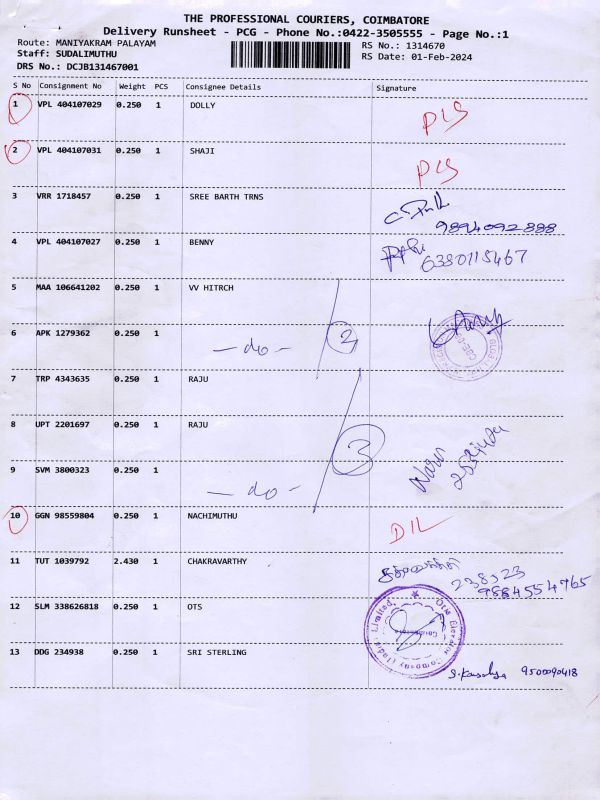 THE PROFESSIONAL COURIERS, COIMBATORE
Delivery Runsheet - PCG - Phone No.:0422-3505555 - Page No.:1
Route: MANIYAKRAM PALAYAM
RS No.: 1314670
Staff: SUDALIMUTHU
RS Date: 01-Feb-2024
DRS No.: DCJB131467001
S No Consignment No Weight PCS Consignee Details Signature
1 VPL 404107029 0.250 1 DOLLY
PLS
2 VPL 404107031 0.250 1 SHAJI
PLS
3 VRR 1718457 0.250 1 SREE BARTH TRNS
9894092888
4 VPL 404107027 0.250 1 BENNY
6380115467
5 MAA 106641202 0.250 1 VV HITRCH
6 APK 1279362 0.250 1
- do - 2
7 TRP 4343635 0.250 1 RAJU
8 UPT 2201697 0.250 1 RAJU
3
9 SVM 3800323 0.250 1
- do -
10 GGN 98559804 0.250 1 NACHIMUTHU
DIL
11 TUT 1039792 2.430 1 CHAKRAVARTHY
238523
9884554765
12 SLM 338626818 0.250 1 OTS
Otis Elevator Company (India) Limited.
13 DDG 234938 0.250 1 SRI STERLING
9500090418